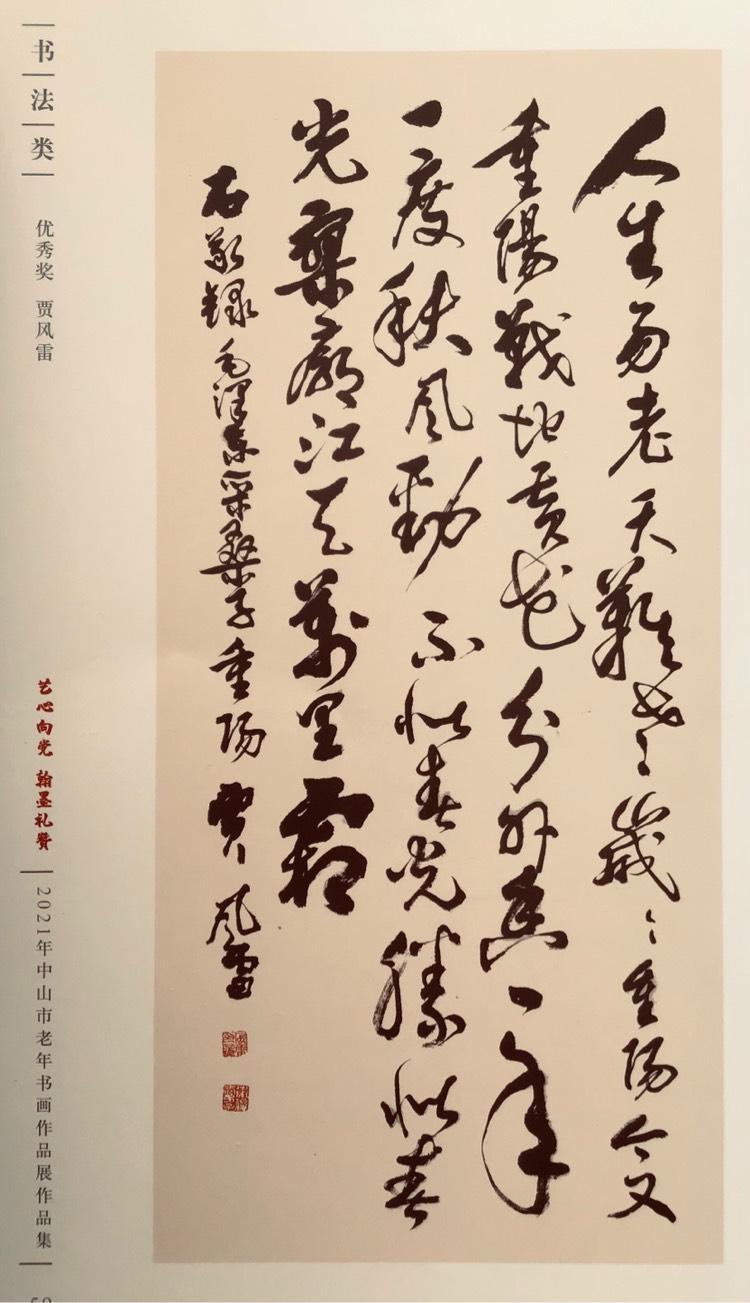 人生易老天難老歲々重陽今又
重陽戰地黃花分外香一年
一度秋風勁不似春光勝似春
光寥廓江天萬里霜
右敬錄毛澤東采桑子重陽賈風雷
书法类
优秀奖 贾风雷
艺心向党 翰墨礼赞
2021年中山市老年书画作品展作品集